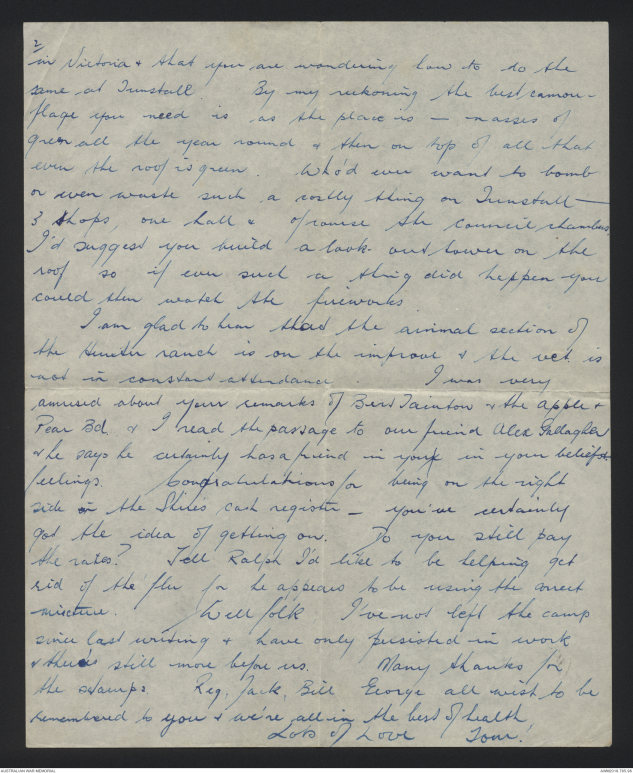 2
in Victoria & that you are wondering how to do the
same at Tunstall. By my reckoning the best camou-
flage you need is as the place is — masses of
green all the year round & then on top of all that
even the roof is green. Who'd ever want to bomb
or even waste such a costly thing on Tunstall —
3 shops, one hall & of course the council chambers.
I'd suggest you build a look-out tower on the
roof so if ever such a thing did happen you
could then watch the fireworks
I am glad to hear that the animal section of
the Hunter ranch is on the improve & the vet is
not in constant attendance. I was very
amused about your remarks of Bert Tainton & the Apple &
Pear Bd. & I read the passage to our friend Alex Gallagher
& he says he certainly has a friend in you in your beliefs &
feelings. Congratulations for being on the right
side in the Shire's cash register — you've certainly
got the idea of getting on. Do you still pay
the rates? Tell Ralph I'd like to be helping get
rid of the flu for he appears to be using the correct
mixture. Well folk I've not left the camp
since last writing & have only persisted in work
& there's still more before us. Many thanks for
the stamps. Reg, Jack, Bill George all wish to be
remembered to you & we're all in the best of health
Lots of Love Tom!
AUSTRALIAN WAR MEMORIAL